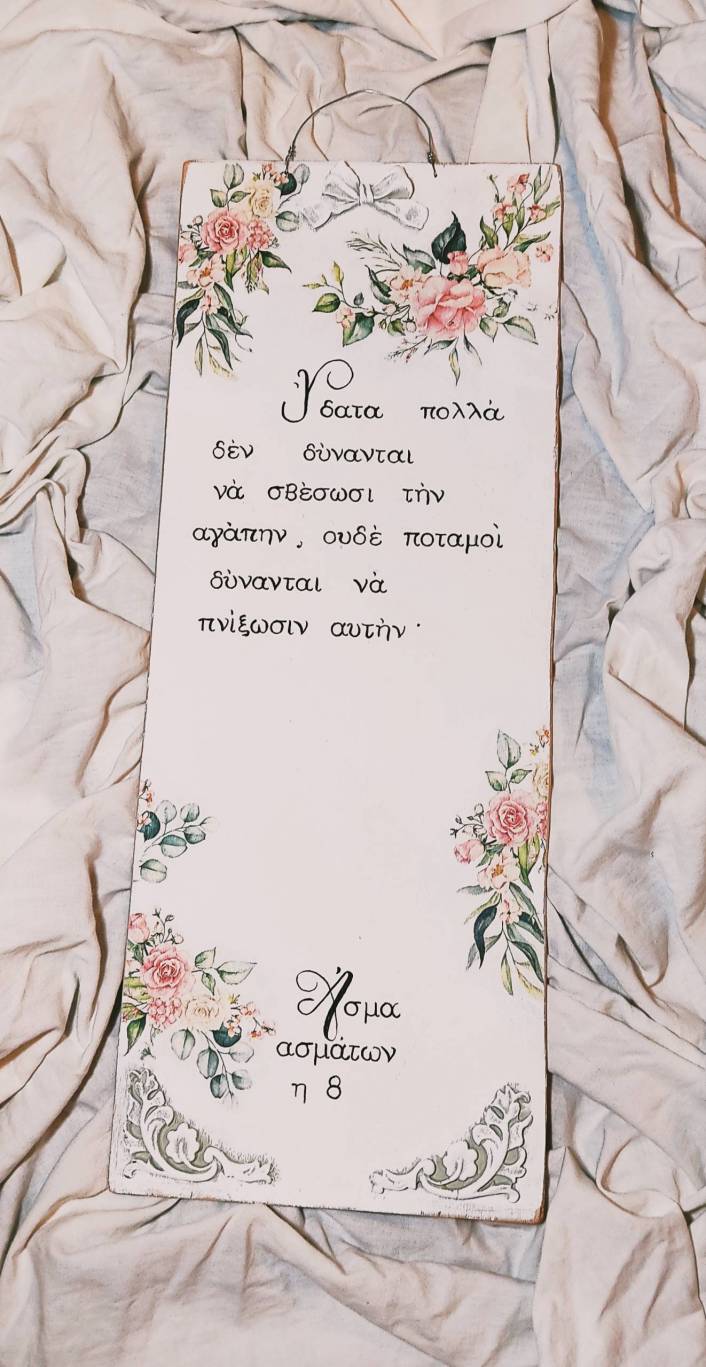 Ύδατα πολλὰ
δὲν δὺνανται
νὰ σβὲσωσι τὴν
αγὰπην, ουδὲ ποταμοὶ
δὺνανται νὰ
πνὶξωσιν αυτὴν·
Ἀσμα
ασμάτων
η 8